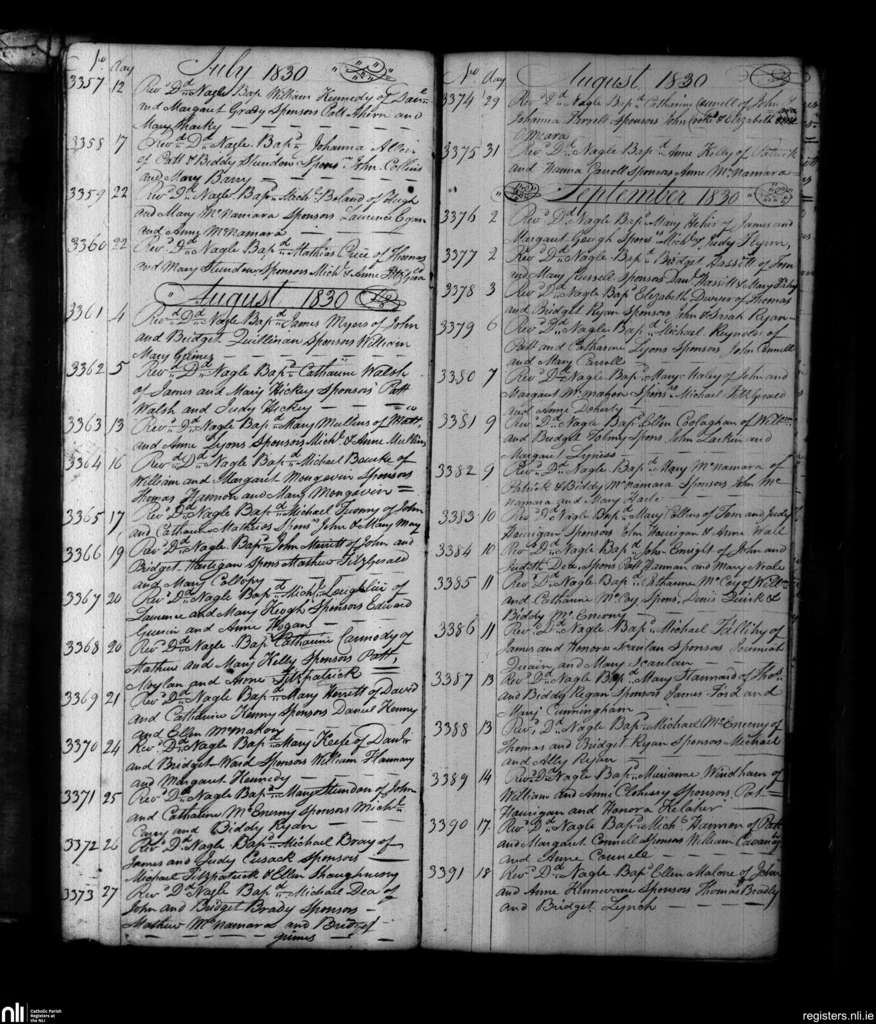 No Day July 1830
3357 12 Revd Dd Nagle Bapd William Kennedy of
and Margaret Grady Sponsors Patt Ahern and
Mary Sharkey
3358 17 Revd Dd Nagle Bapd Johanna
of Patt & Biddy Sponrs John Collins
and Mary Barry
3359 22 Revd Dd Nagle Bapd Michl Boland of Hugh
and Mary McNamara Sponsors Laurence Egan
and Anny McNamara
3360 22 Revd Dd Nagle Bapd Mathias Price of Thomas
and Mary Sponsors Michl & Anne Fitzgerd
August 1830
3361 4 Revd Dd Nagle Bapd James Myers of John
and Bridget Quillinan Sponsors William
Mary Grimes
3362 5 Revd Dd Nagle Bapd Catharine Walsh
of James and Mary Hickey Sponsors Patt
Walsh and Judy Hickey
3363 13 Revd Dd Nagle Bapd Mary Mullens of Matt
and Anne Lyons Sponsors Michl & Anne Mullins
3364 16 Revd Dd Nagle Bapd Michael Bourke of
William and Margaret Mongavin Sponsors
Thomas Hannon and Mary Mongavin
3365 17 Revd Dd Nagle Bapd Michael Twomy of John
and Catharine Mathias Sponrs John & Mary
3366 19 Revd Dd Nagle Bapd John Merritt of John and
Bridget Hartigan Spons Mathew Fitzgerald
and Mary Collopy
3367 20 Revd Dd Nagle Bapd Michl Loughlin of
Laurence and Mary Keogh Sponsors Edward
Guerin and Anne Hogan
3368 20 Revd Dd Nagle Bapd Catharine Carmody of
Mathew and Mary Kelly Sponsors Patt
Moylan and Anne Fitzpatrick
3369 21 Revd Dd Nagle Bapd Mary Herritt of David
and Catharine Henny Sponsors Daniel Henny
and Ellen McMahon
3370 24 Revd Dd Nagle Bapd Mary Keefe of Danl
and Bridget Ward Sponsors William Flannary
and Margaret Kennedy
3371 25 Revd Dd Nagle Bapd Mary of John
and Catharine McEnemy Sponsors Michl
Curry and Biddy Ryan
3372 26 Revd Dd Nagle Bapd Michael Bray of
James and Judy Cusack Sponsors
Michael Fitzpatrick & Ellen Shaughnessy
3373 27 Revd Dd Nagle Bapd Michael Dea of
John and Bridget Brady Sponsors
Mathew McNamara and Bridget
Grimes
No Day August 1830
3374 29 Revd Dd Nagle Bapd Catherine Connell of John
Johanna Sponsors John & Elizabeth
OMeara
3375 31 Revd Dd Nagle Bapd Anne Kelly of Patrick
and Hanna Powell Sponsors Anne McNamara
September 1830
3376 2 Revd Dd Nagle Bapd Mary of James and
Margaret Geogh Spons Michl & Judy Flynn
3377 2 Revd Dd Nagle Bapd Bridget Hassett of Tom
and Mary Russell Sponsors Danl Hassett & Mary
3378 3 Revd Dd Nagle Bapd Elizabeth Dwyer of Thomas
and Bridget Ryan Sponsors John & Sarah Ryan
3379 6 Revd Dd Nagle Bapd Michael Reynolds of
Patt and Catharine Lyons Sponsors John Connell
and Mary Carroll
3380 7 Revd Dd Nagle Bapd Mary Haley of John and
Margaret McMahon Sponsrs Michael Fitzgerald
and Anne Doherty
3381 9 Revd Dd Nagle Bapd Ellen Coolaghan of Willm
and Bridget Spons John Larkin and
Margaret
3382 9 Revd Dd Nagle Bapd Mary McNamara of
Patrick & Biddy McNamara Sponsors John Mc
Namara and Mary Earle
3383 10 Revd Dd Nagle Bapd Mary of Tom and Judy
Hourigan Sponsors Tom Hourigan & Anne Wall
3384 10 Revd Dd Nagle Bapd John Enright of John and
Judith Spons Patt and Mary Neale
3385 11 Revd Dd Nagle Bapd Catharine McCoy of Willm
and Catharine McCoy Spons Denis Quirk &
Biddy McEniry
3386 11 Revd Dd Nagle Bapd Michael Fallihy of
James and Honora Scanlan Sponsors Jeremiah
Quain and Mary Scanlan
3387 13 Revd Dd Nagle Bapd Mary Stannard of Thos
and Biddy Regan Sponsors James Ford and
Mary Cunningham
3388 13 Revd Dd Nagle Bapd Michael McEnerny of
Thomas and Bridget Ryan Sponsors Michael
and Ally Ryan
3389 14 Revd Dd Nagle Bapd Marianne Windham of
William and Anne Clohessy Sponsors Pat
Hourigan and Honora Kelaher
3390 17 Revd Dd Nagle Bapd Michl Hannon of Patt
and Margaret Connell Sponsors William Cavanagh
and Anne Councle
3391 18 Revd Dd Nagle Bapd Ellen Malone of John
and Anne Hunnivane Sponsors Thomas Bradly
and Bridget Lynch
nli
Catholic Parish
Registers at
the NLI
registers.nli.ie